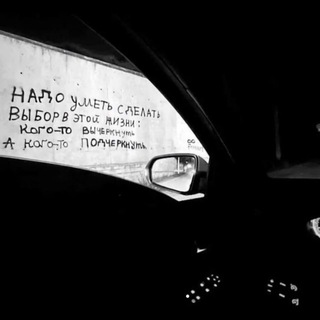 НАДО УМЕТЬ СДЕЛАТЬ
ВЫБОР В ЭТОЙ ЖИЗНИ:
КОГО-ТО ВЫЧЕРКНУТЬ
А КОГО-ТО ПОДЧЕРКНУТЬ.